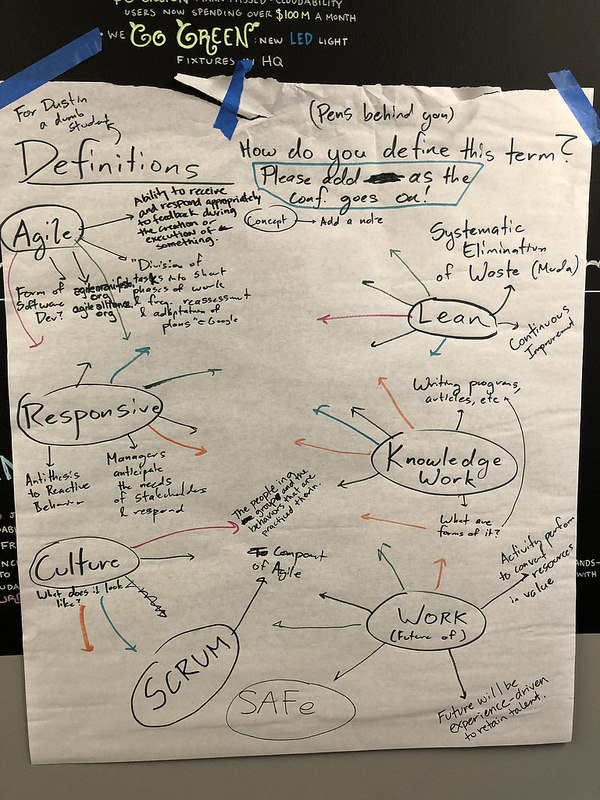 USERS NOW SPENDING OVER $100M A MONTH
WE GO GREEN: NEW LED LIGHT
FIXTURES IN HQ
For Dustin
a dumb
student
Definitions
(Pens behind you)
How do you define this term?
Please add as the
conf. goes on!
Concept
Add a note
Agile
Ability to receive
and respond appropriately
to feedback during
the creation or
execution of
something.
Form of
Software
Dev?
agilemanifesto
.org
agilealliance.
org
"Division of
tasks into short
phases of work
& freq. reassessment
& adaptation of
plans" - Google
Systematic
Elimination
of Waste (Muda)
Lean
Continuous
Improvement
Responsive
Antithesis
to Reactive
Behavior
Managers
anticipate
the needs
of stakeholders
& respond
Writing programs,
articles, etc
Knowledge
Work
What are
forms of it?
The people in a
group and the
behaviors that are
practiced therein.
Culture
What does it look
like?
Component
of Agile
SCRUM
SAFe
WORK
(Future of)
Activity perform
to convert
resources
in value
Future will be
experience-driven
to retain talent.